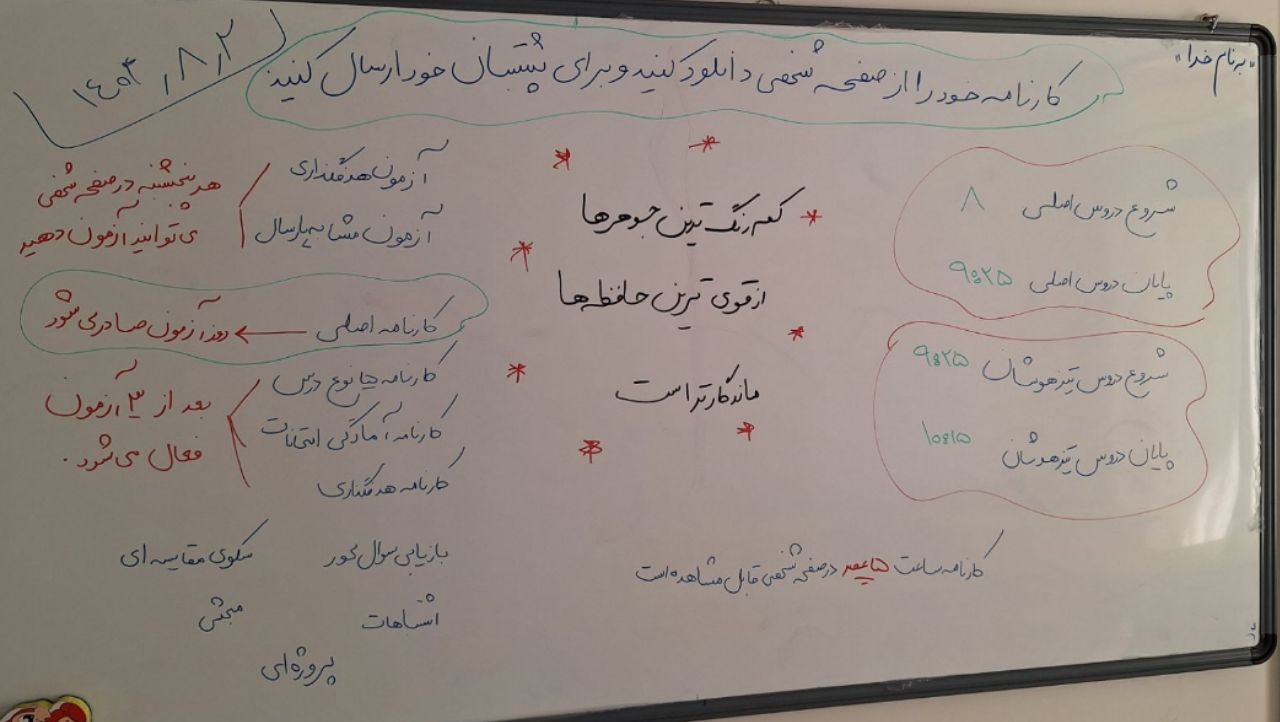 "به نام خدا"
۱۴۰۳٫۸٫۲
کارنامه خود را از صفحه شخصی دانلود کنید و برای پشتیبان خود ارسال کنید
شروع دروس اصلی ۸
پایان دروس اصلی ۹:۲۵
شروع دروس تیزهوشان ۹:۲۵
پایان دروس تیزهوشان ۱۰:۱۵
کارنامه ساعت ۱۵ به بعد در صفحه شخصی قابل مشاهده است
کم رنگ ترین جوهرها
از قوی ترین حافظه ها
ماندگارتر است
آزمون هدفگذاری
آزمون مشابه پارسال
هر پنجشنبه در صفحه شخصی
می توانید آزمون دهید
کارنامه اصلی ← روز آزمون صادر می شود
کارنامه نوع درس
کارنامه آمادگی امتحانات
کارنامه هدفگذاری
بعد از ۳ آزمون
فعال می شود.
بازیابی سوال محور
سکوی مقایسه ای
اشتباهات
مبحثی
پروژه ای